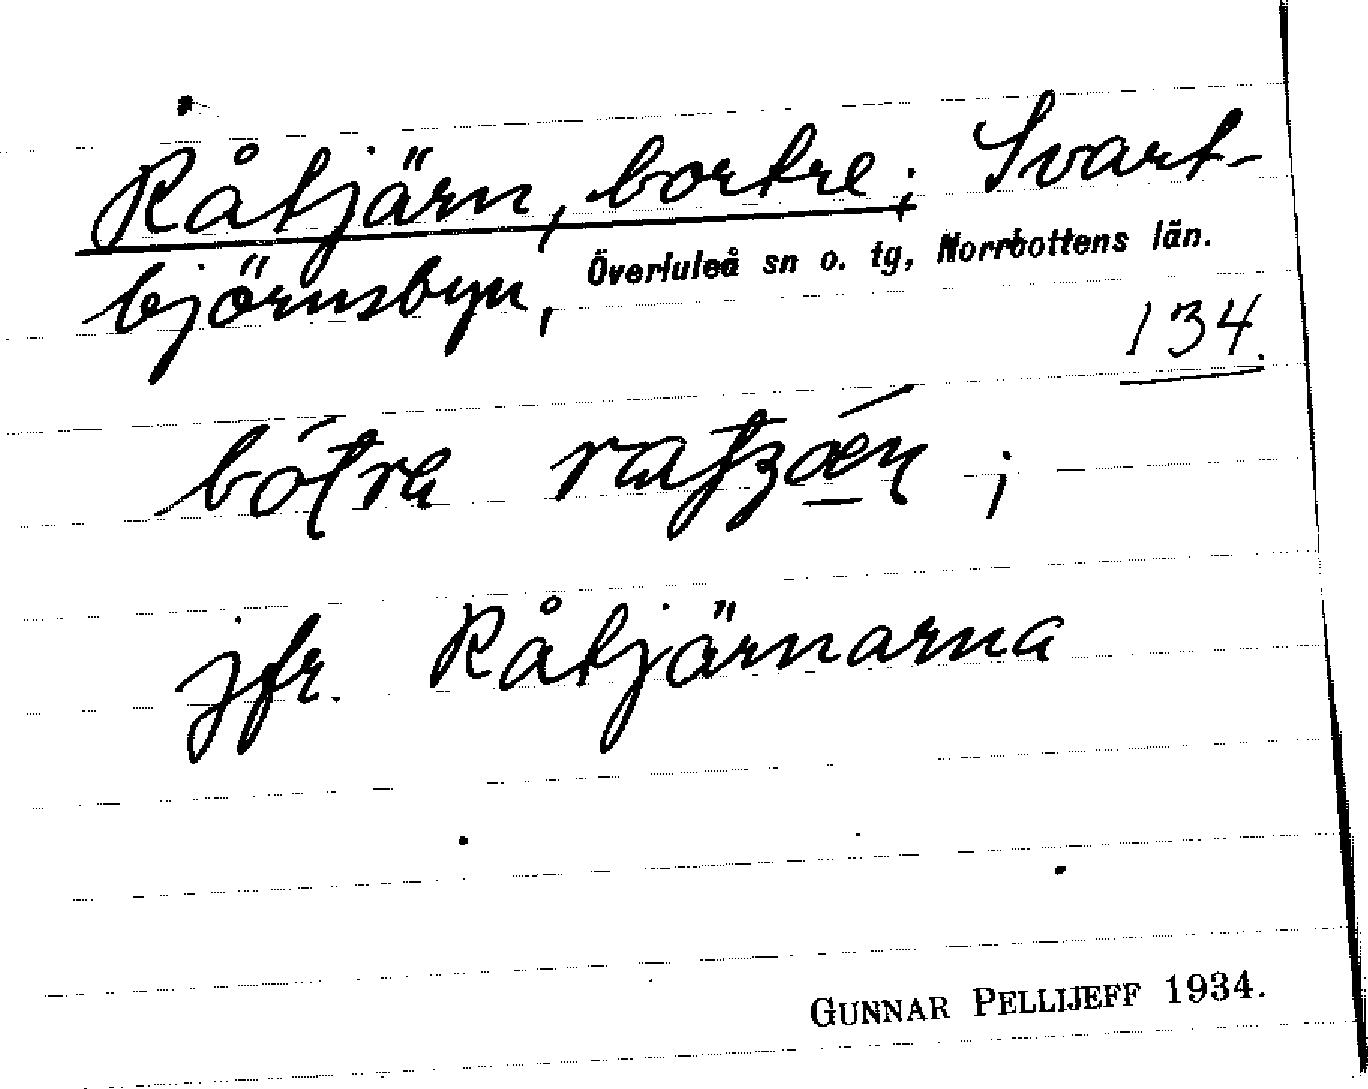 Råtjärn, bortre; Svart-
björnsbyn, Överluleå sn o. tg, Norrbottens län.
134.
bótra ;
jfr. Råtjärnarna
GUNNAR PELLIJEFF 1934.